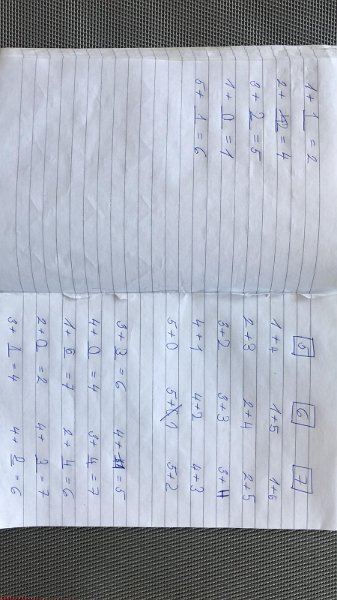 1 + 1 = 2
2 + 2 = 4
3 + 2 = 5
1 + 0 = 1
5 + 1 = 6
5 6 7
1+4 1+5 1+6
2+3 2+4 2+5
3+2 3+3 3+4
4+1 4+2 4+3
5+0 5+1 5+2
3+3=6 4+1=5
4+0=4 3+4=7
1+6=7 2+4=6
2+0=2 4+3=7
3+1=4 4+2=6